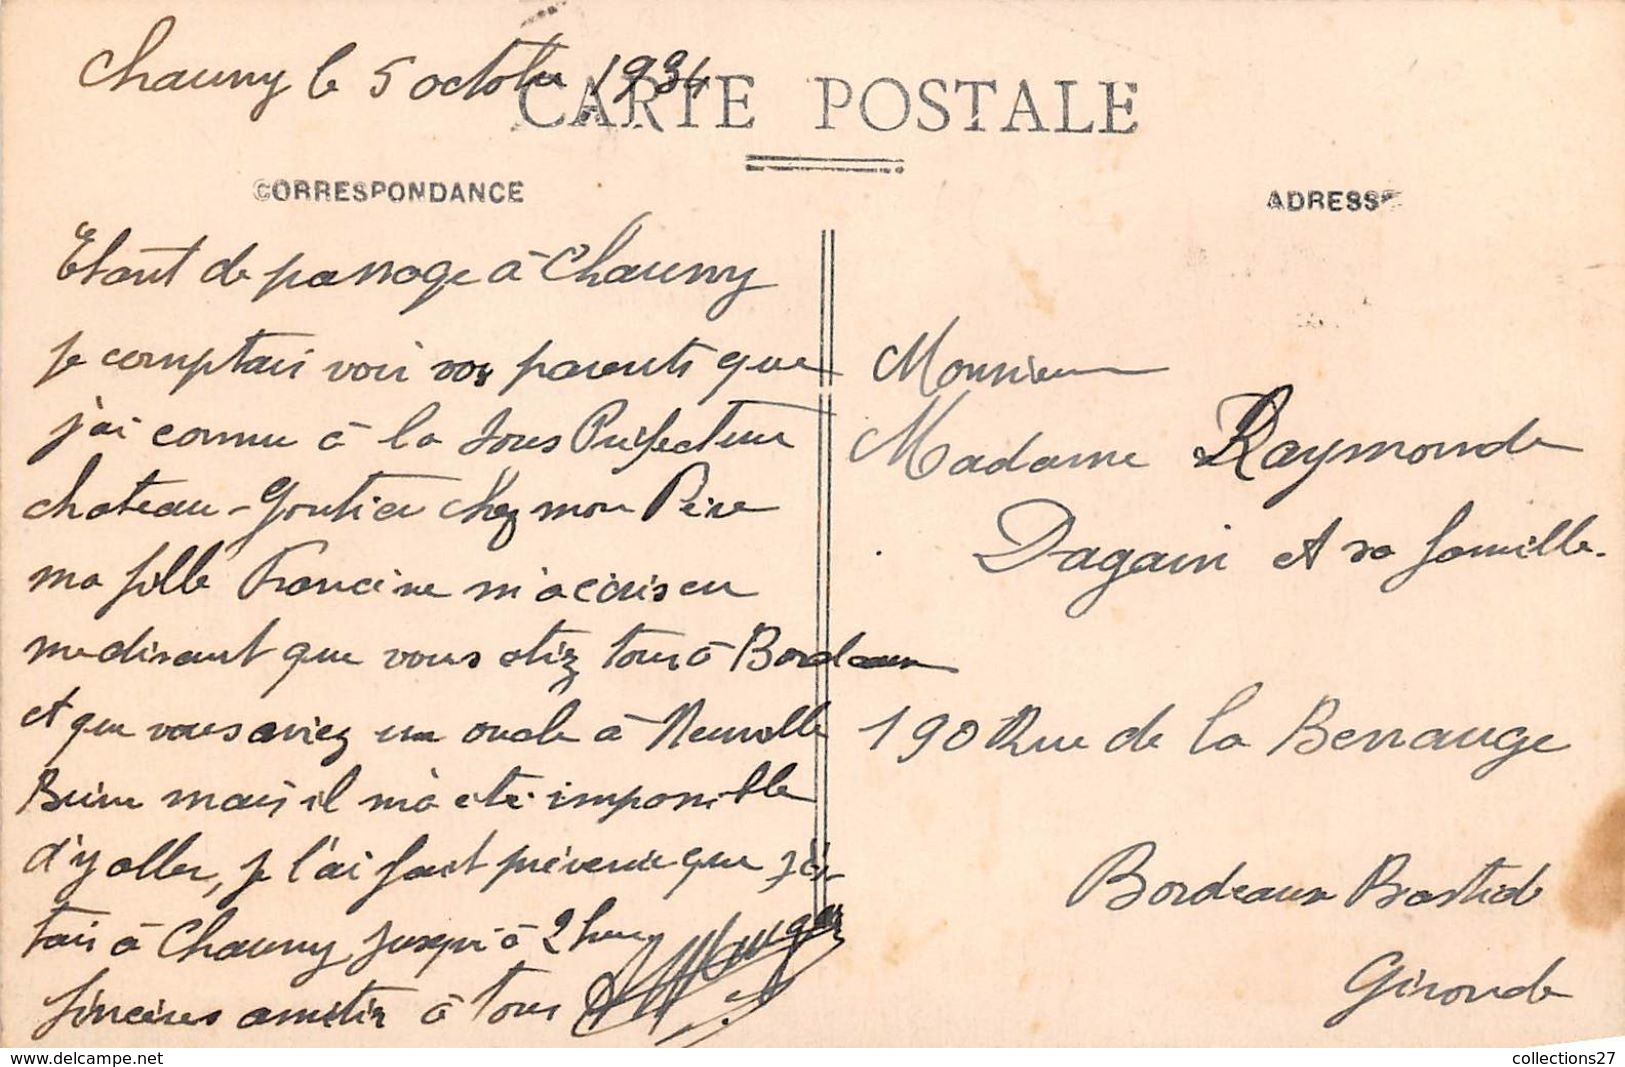 Chauny le 5 octobre 1934
CARTE POSTALE
CORRESPONDANCE
ADRESSE
Etant de passage à Chauny
je comptais voir vos parents que
j'ai connu à la Sous Préfecture
chateau-Gontier chez mon Père
ma fille Francine m'a écris en
me disant que vous etiez tous à Bordeaux
et que vous aviez un oncle à Neuville
Beine mais il m'a ete impossible
d'y aller, je l'ai fait prévenir que j'é-
tais à Chauny jusqu'à 2 heures
Sincères amitiés à tous
Monsieur
Madame Raymonde
Dagain et sa famille.
190 Rue de la Benauge
Bordeaux Bastide
Gironde
collections27